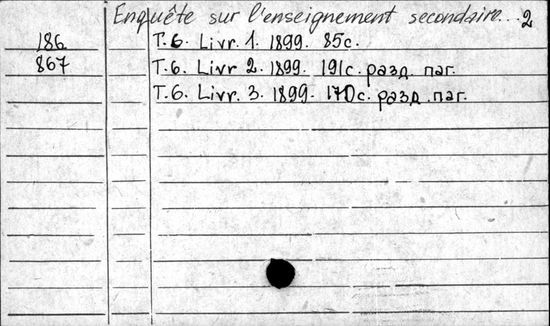 Enquête sur l'enseignement secondaire... 2
186 T. 6. Livr. 1. 1899. 85c.
867 T. 6. Livr. 2. 1899. 191c. разд. паг.
T. 6. Livr. 3. 1899. 170c. разд. паг.